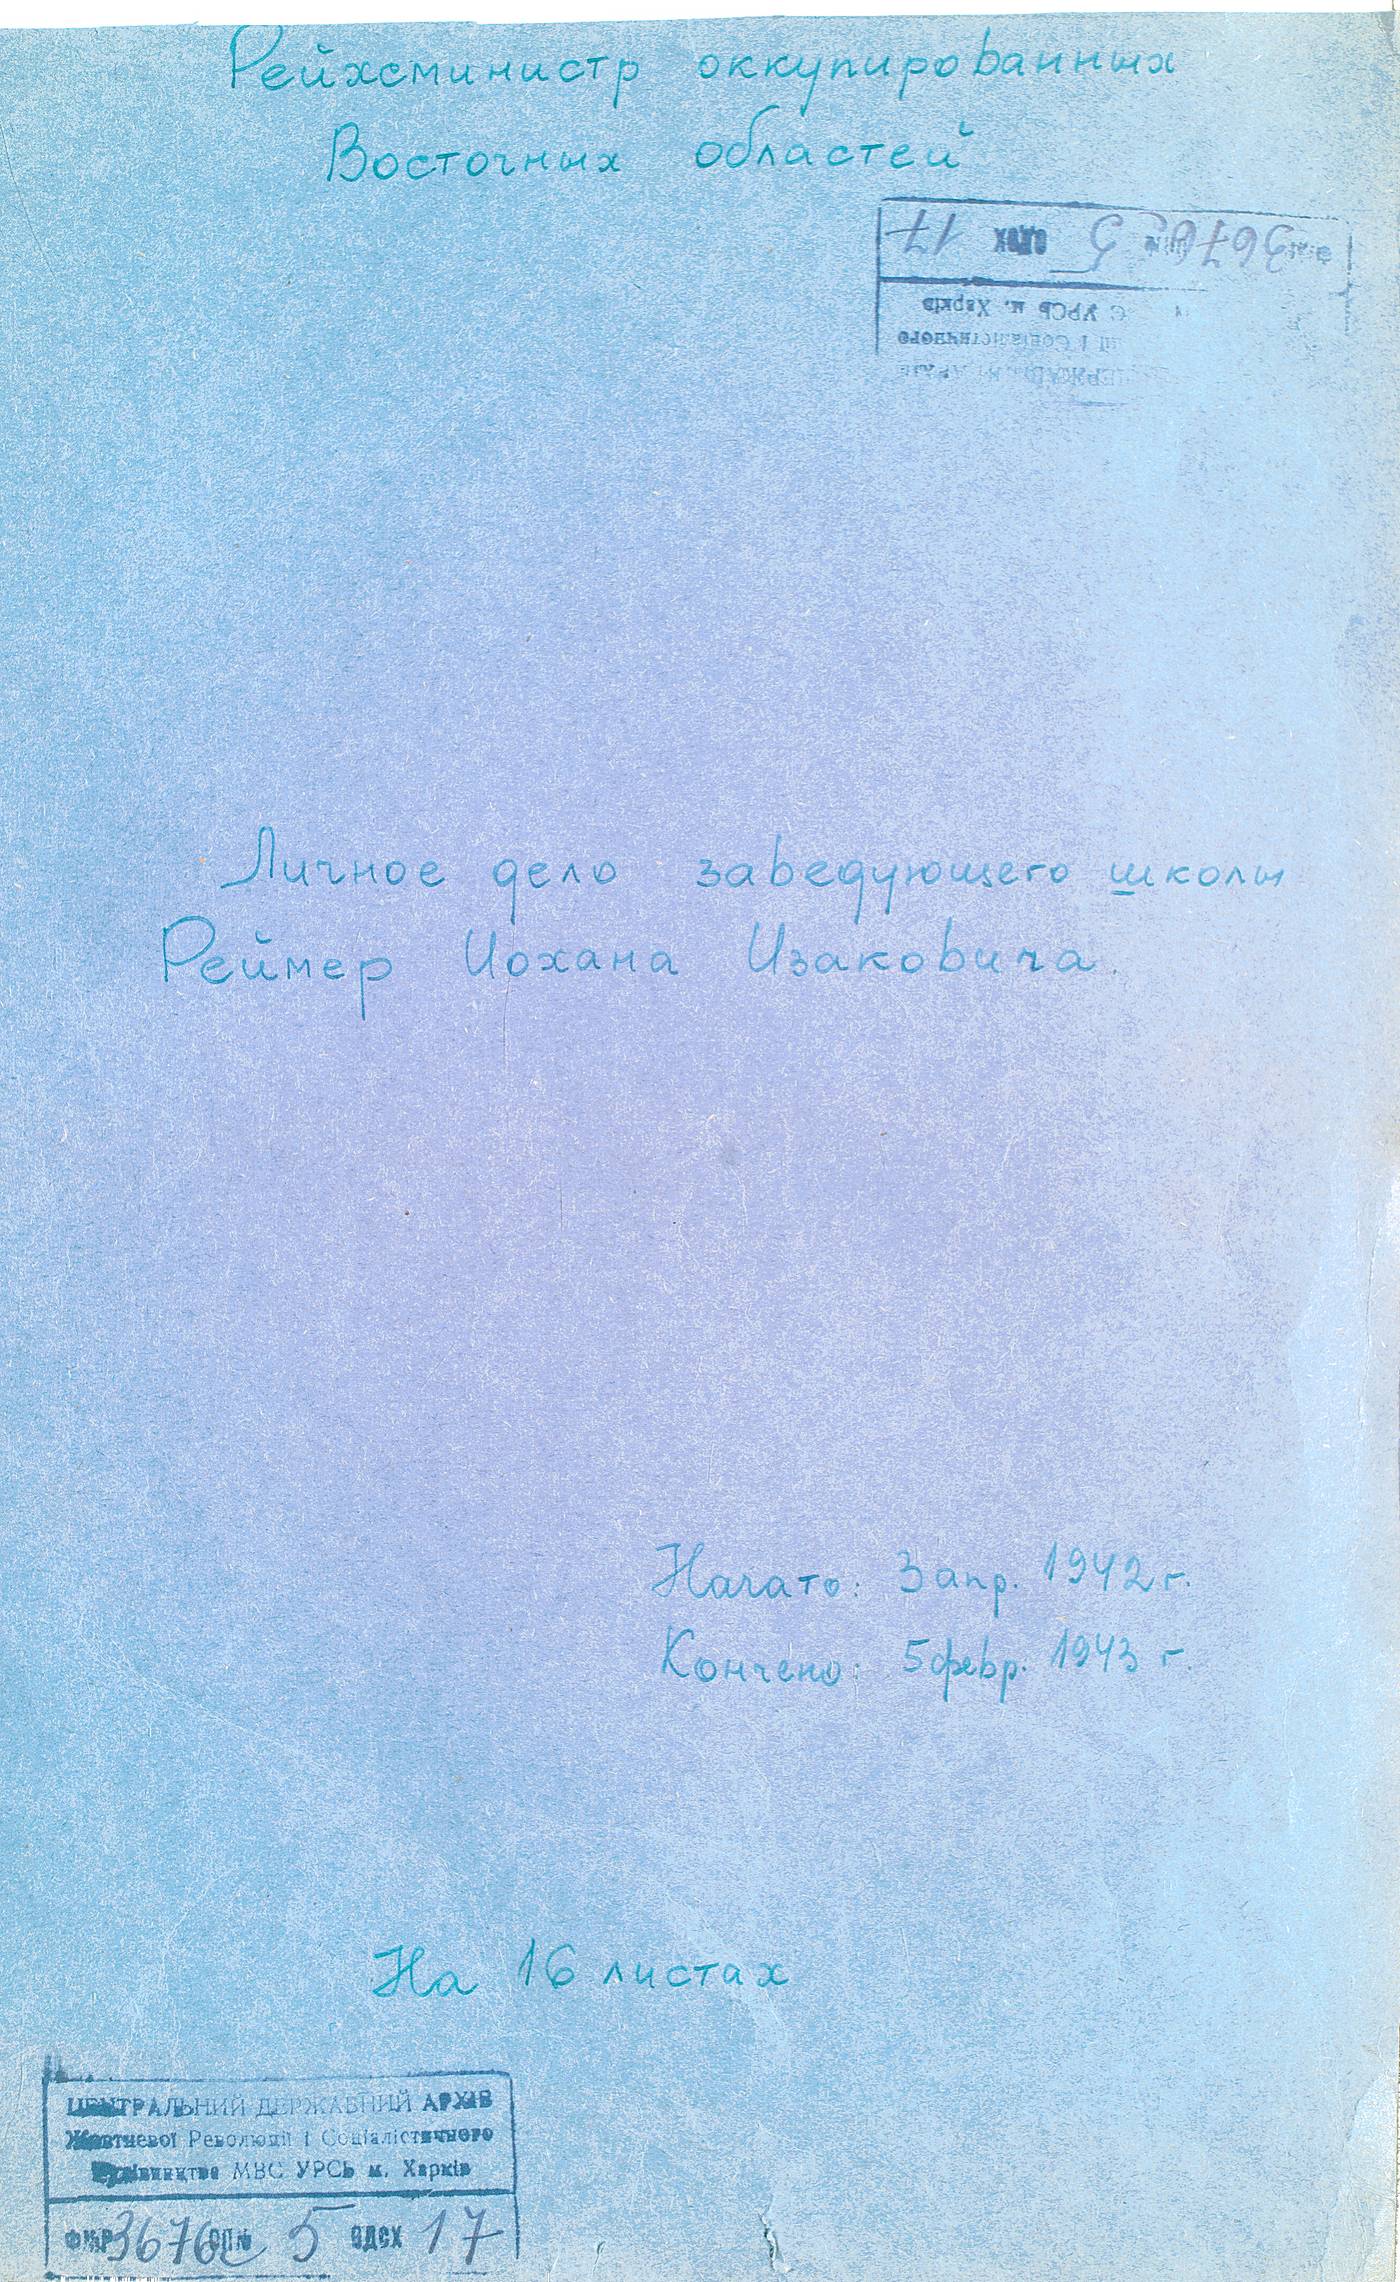 Рейхсминистр оккупированных
Восточных областей
3676 5 17
УРСР м. Харків
і Соціалістичного
Личное дело заведующего школы
Реймер Иохана Изаковича.
Начато: 3 апр. 1942 г.
Кончено: 5 февр. 1943 г.
На 16 листах
ЦЕНТРАЛЬНИЙ ДЕРЖАВНИЙ АРХІВ
Жовтневої Революції і Соціалістичного
Будівництва МВС УРСР м. Харків
3676 5 17